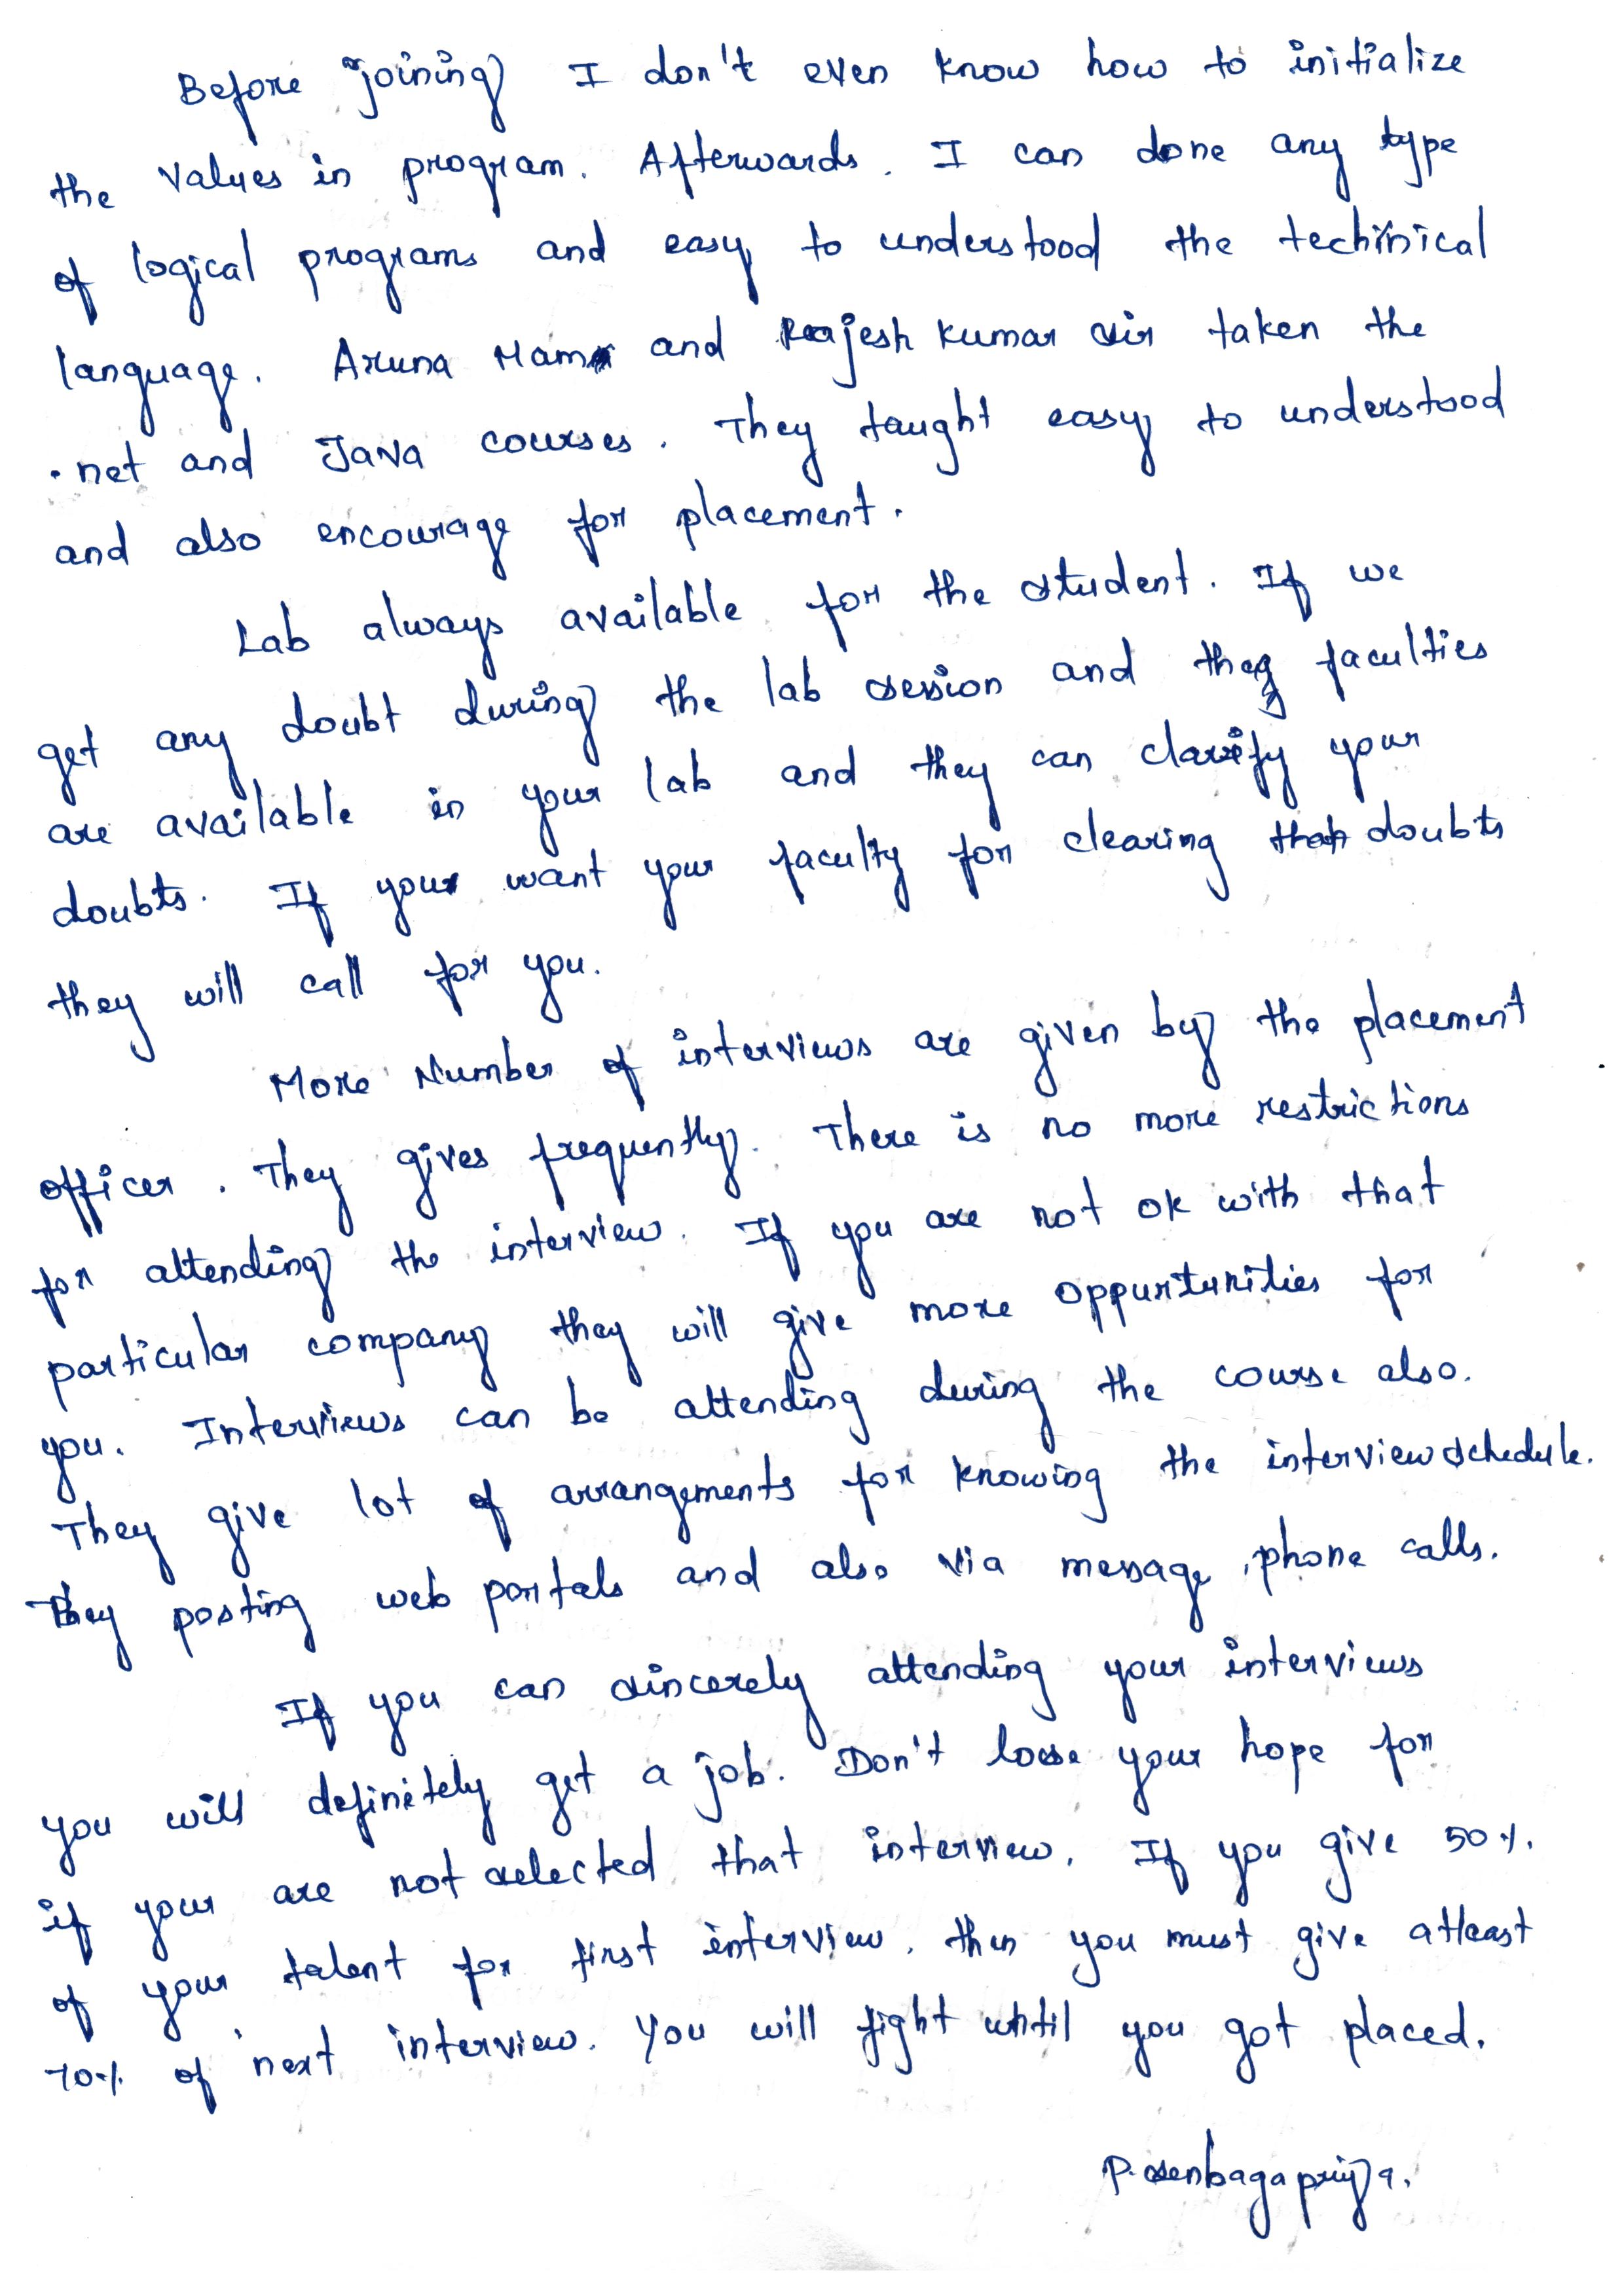 Before joining I don't even know how to initialize
the values in program. Afterwards. I can done any type
of logical programs and easy to understood the techinical
language. Aruna Mam and Rajesh Kumar sir taken the
.net and Java courses. They taught easy to understood
and also encourage for placement.
Lab always available for the student. If we
get any doubt during the lab session and they faculties
are available in your lab and they can clarify your
doubts. If your want your faculty for clearing that doubts
they will call for you.
More Number of interviews are given by the placement
officer. They gives frequently. There is no more restrictions
for attending the interview. If you are not ok with that
particular company they will give more oppurtunities for
you. Interviews can be attending during the course also.
They give lot of arrangements for knowing the interview schedule.
They posting web portals and also via message, phone calls.
If you can sincerely attending your interviews
you will definitely get a job. Don't loose your hope for
if your are not selected that interview. If you give 50%
of your talent for first interview, then you must give atleast
70% of next interview. You will fight until you got placed.
P. senbagapriya.